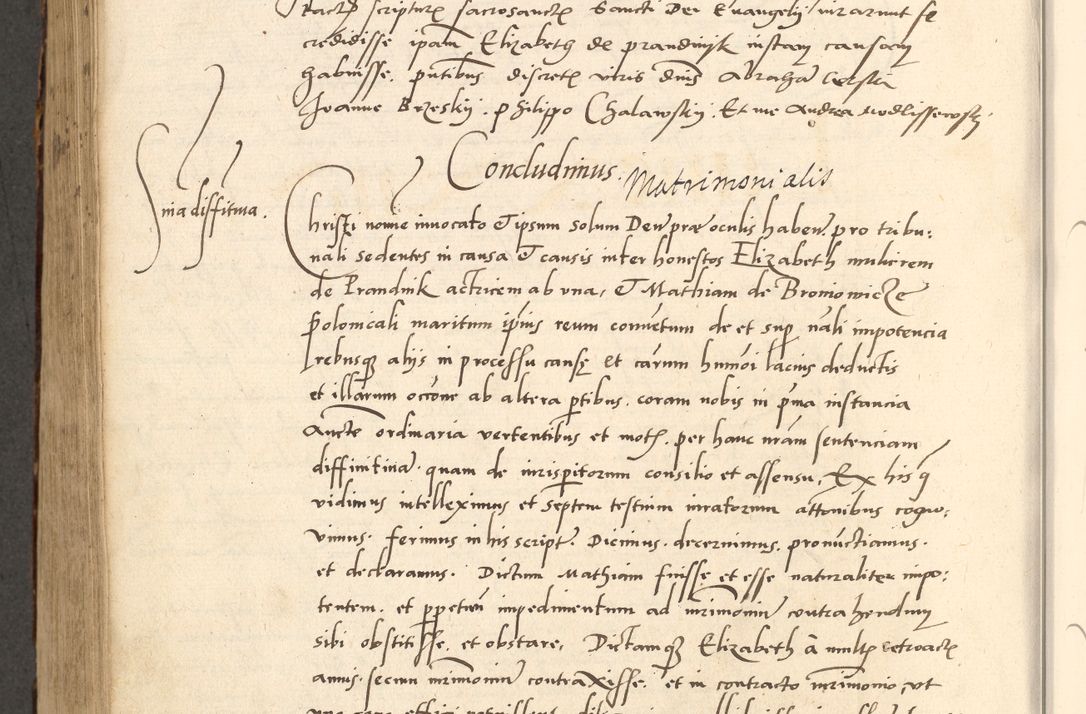 tactis scripturis sacrosancti Sancti Dei Euangelij iurarunt se
credidisse ipam Elizabeth de prandnijk iustam causam
habuisse. pntibus discretis viris dnis Abraha
Joanne Brzeskij. philippo Chalawskij. Et me Andrea modlissewskj.
Concludimus. Matrimonialis
nia diffitiua.
Christi nomie innocato & ipsum solum Deu præ oculis haben. pro tribu:
nali sedentes in causa & causis inter honestos Elizabeth mulierem
de Prandnik actricem ab vna, & Mathiam de Broniowicze
Polonicali maritum ipius reum conuctum de et sup nali impotencia
rebusq alijs in processu causę et carum humoi lacius deductis
et illarum occone ab altera ptibus. coram nobis in pma instancia
Aucte ordinaria vertentibus et mot. per hanc nram sentenciam
diffinitiua. quam de iurisperitorum consilio et assensu, Ex his q
vidimus intelleximus et septem testium iuratorum attonibus cogno:
uimus. ferimus in his script. Dicimus. decernimus. pronuctiamus.
et declaramus. Dictum Mathiam fuisse et esse naturaliter impo:
tentem. et ppetuu impedimentum ad mrimoniu contrahendum
sibi obstitisse. et obstare, Dictamq Elizabeth à mult retroact
annis. secum mrimoniu contraxisse. et in contracto mrimonio, vt